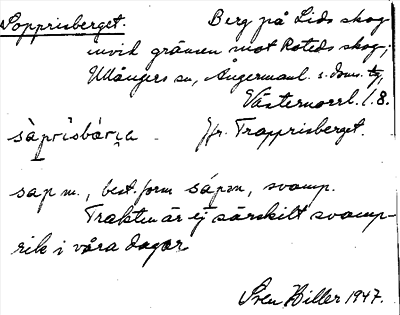 Sopprisberget. Berg på Lids skog
invid gränsen mot Roteds skog;
Ullångers sn, Ångermanl. s. doms. tg,
Västernorrl. l. 8.
såprisbárɲa Jfr. Trapprisberget.
sap m., best. form sápən, svamp.
Trakten är ej särskilt svamp-
rik i våra dagar
Sven Hiller 1947.